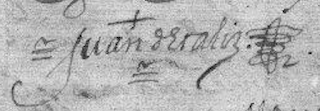 Juan de caliz